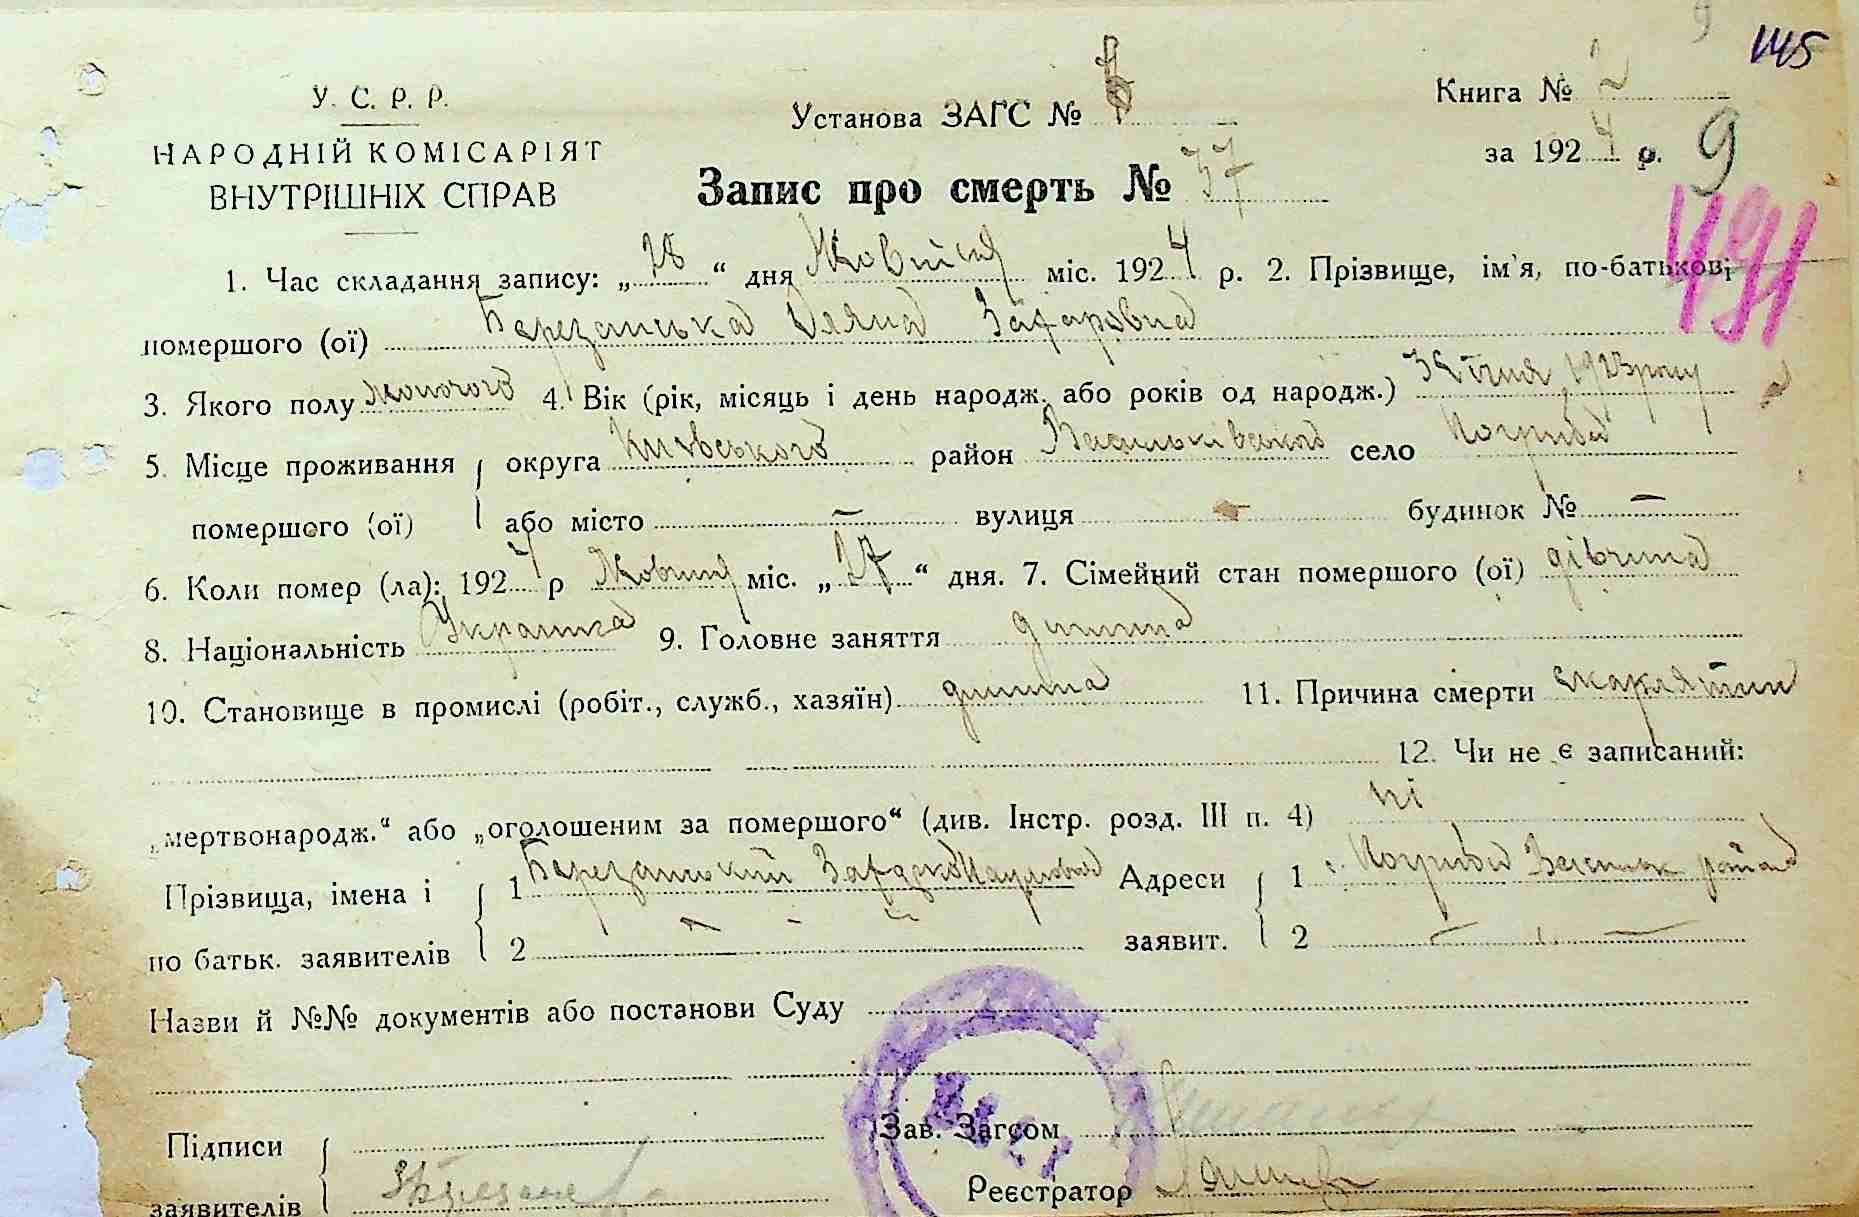 145
У. С. Р. Р.
НАРОДНІЙ КОМІСАРІЯТ
ВНУТРІШНІХ СПРАВ
Установа ЗАГС №
Книга № 2
за 1924 р. 9
Запис про смерть № 37
491
1. Час складання запису: „28“ дня Жовтня міс. 1924 р. 2. Прізвище, ім'я, по-батькові
помершого (ої) Березанська Уляна Захаровна
3. Якого полу жоночого 4. Вік (рік, місяць і день народж. або років од народж.) 1923 року
5. Місце проживання помершого (ої) { округа Київського район Васильківського село Погриби
або місто — вулиця — будинок № —
6. Коли помер (ла): 1924 р Жовтня міс. „27“ дня. 7. Сімейний стан помершого (ої) дівчина
8. Національність Українка 9. Головне заняття дитина
10. Становище в промислі (робіт., служб., хазяїн) дитина 11. Причина смерти скарлятин
12. Чи не є записаний:
„мертвонародж.“ або „оголошеним за помершого“ (див. Інстр. розд. III п. 4) ні
Прізвища, імена і по батьк. заявителів { 1 Березанський Адреси заявит. { 1 Погриби район
2 — 2 —
Назви й №№ документів або постанови Суду
Підписи заявителів {
Зав. Загсом
Реєстратор